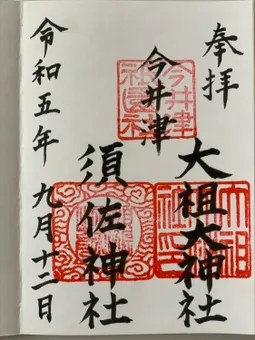 奉拝
今井津
大祖大神社
須佐神社
令和五年九月十二日